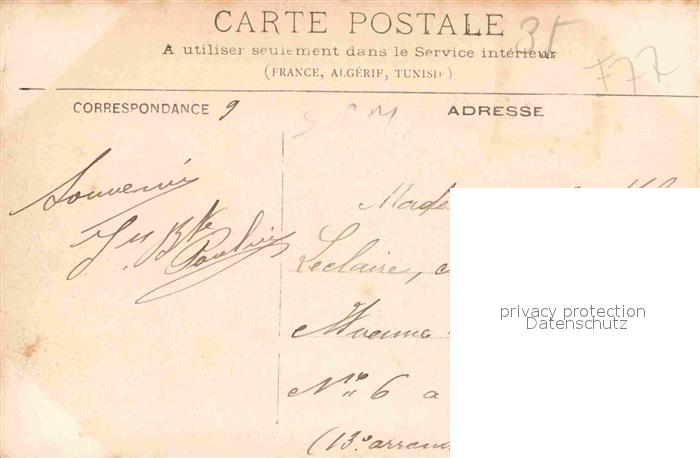 CARTE POSTALE
A utiliser seulement dans le Service intérieur
(FRANCE, ALGÉRIE, TUNISIE)
35
77Z
CORRESPONDANCE 9
ADRESSE
Souvenir
Leclaire,
Nº 6 a
(13e arron
privacy protection
Datenschutz